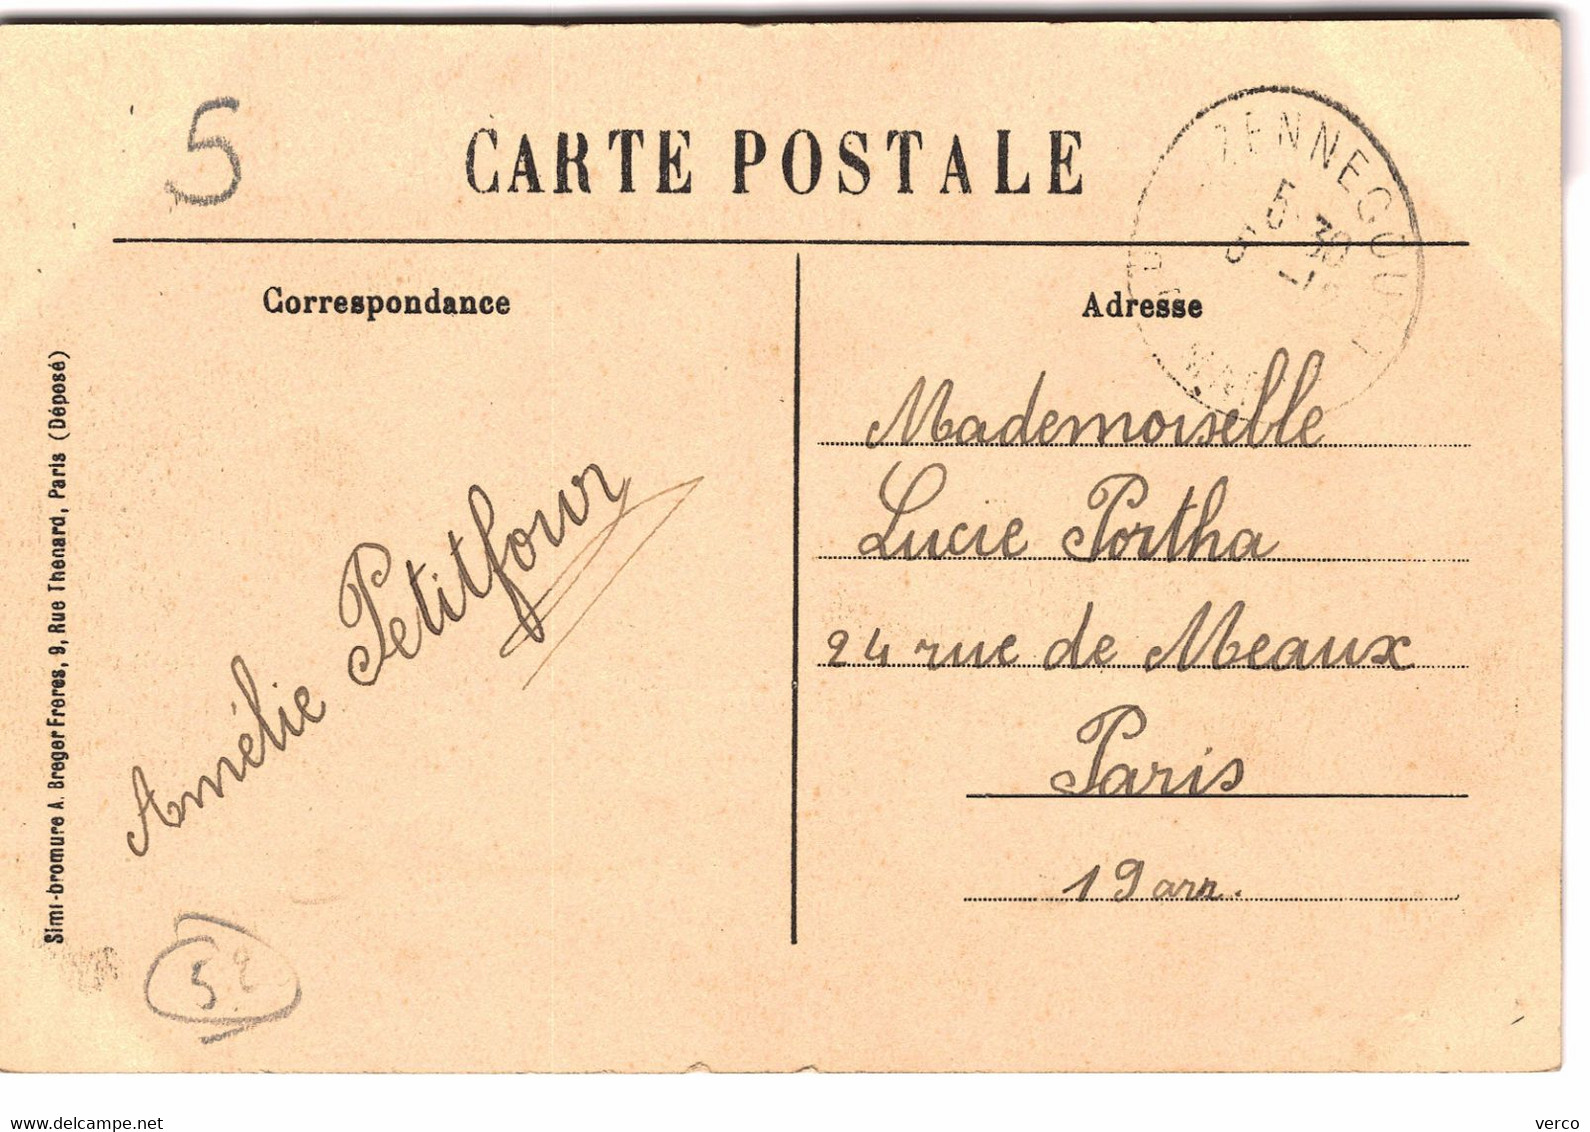 5
CARTE POSTALE
ZENNECOURT
5 30
Correspondance
Adresse
Simi-bromure A. Breger Freres, 9, Rue Thenard, Paris (Déposé)
Mademoiselle
Lucie Portha
24 rue de Meaux
Paris
19 arr.
Amélie Petitfour
52
www.delcampe.net
verco